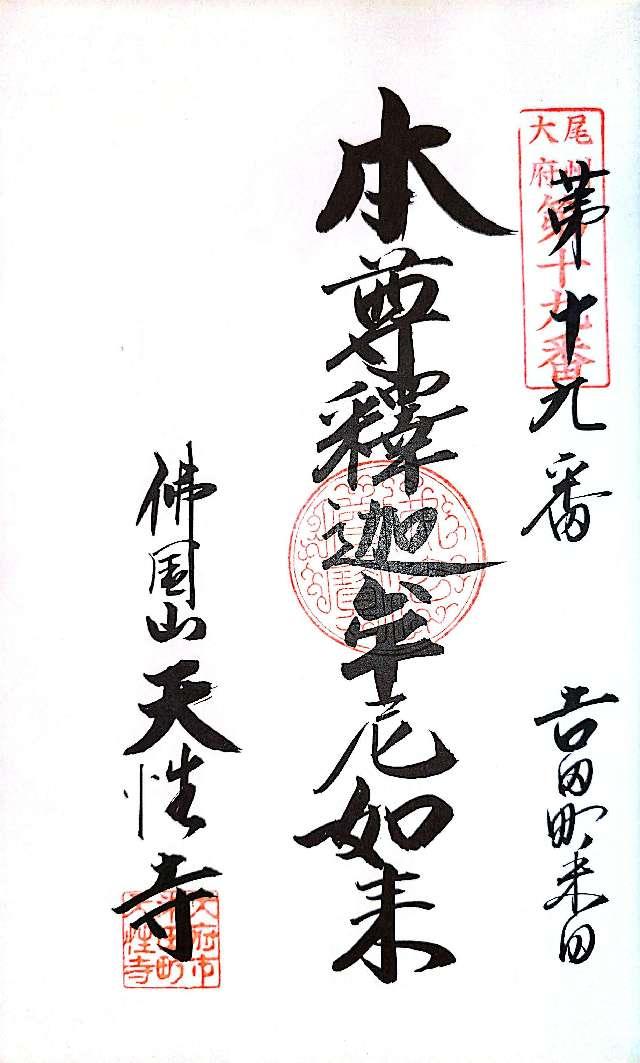 第十九番　吉田町半田
尾州
大府
第十九番
本尊釋迦牟尼如来
佛国山天性寺
大府市
天性寺